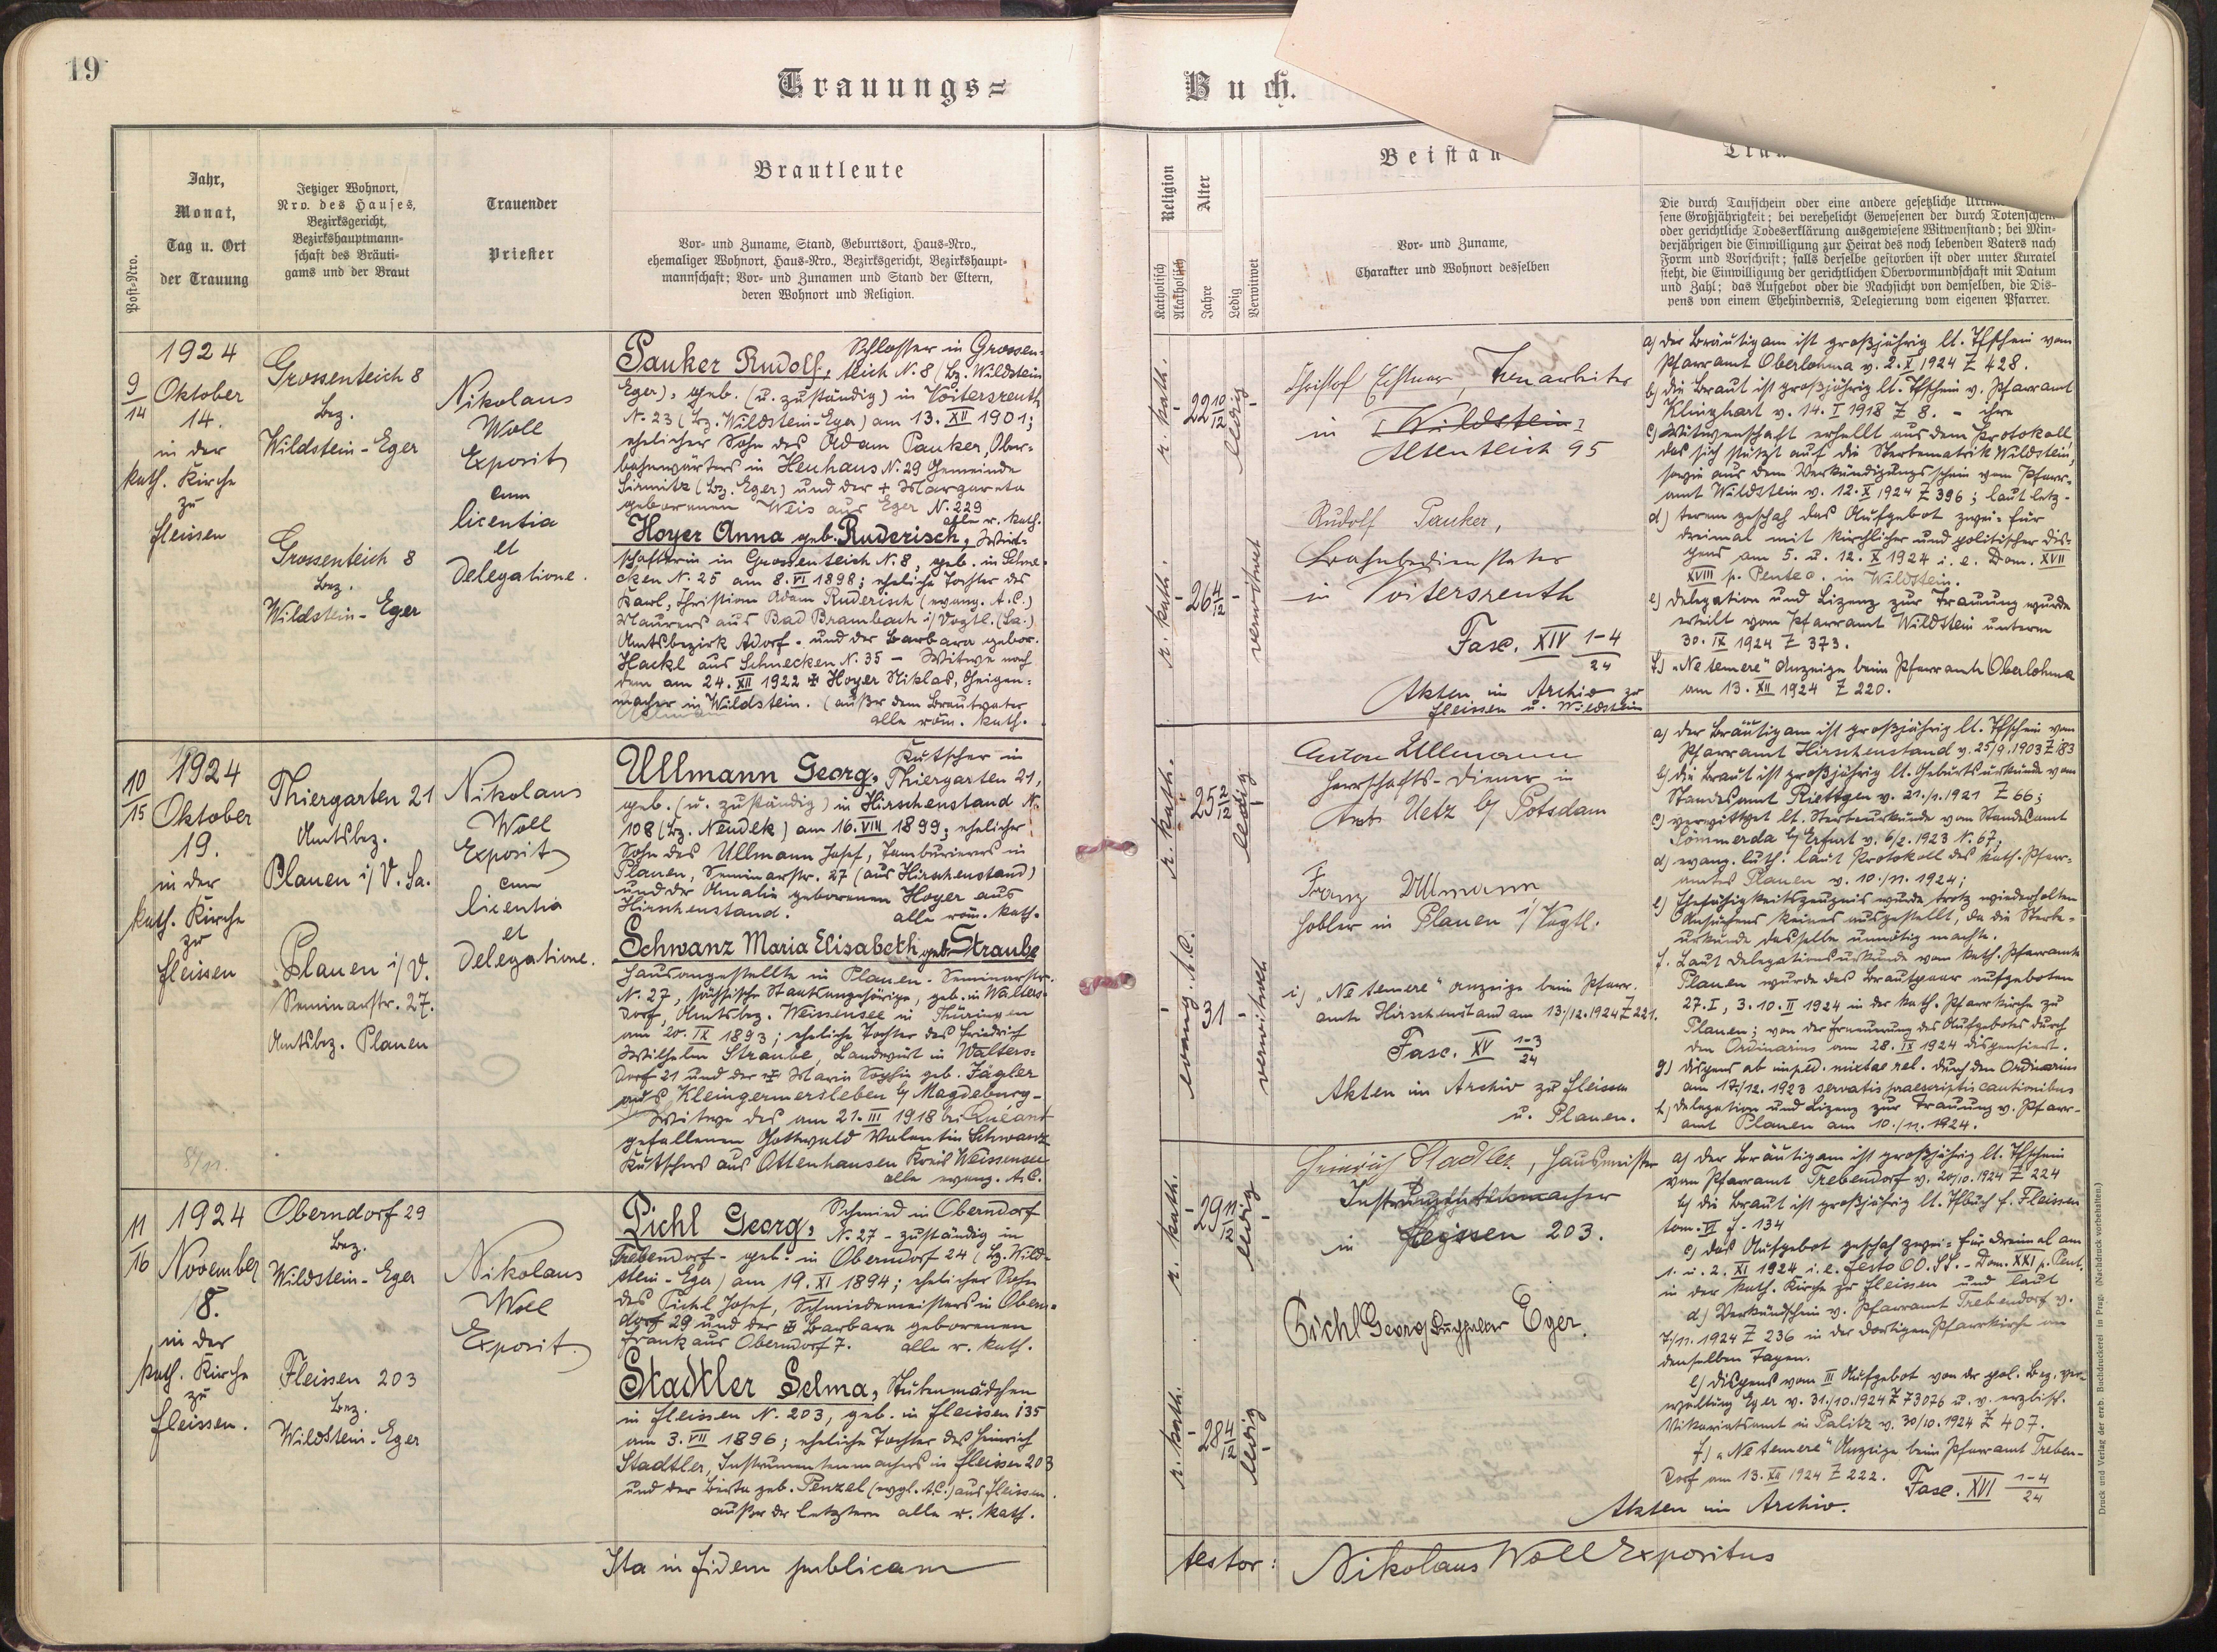 19
Trauungs=
Buch.
Post-Nro.
Jahr,
Monat,
Tag u. Ort
der Trauung
Jetziger Wohnort,
Nro. des Hauses,
Bezirksgericht,
Bezirkshauptmann-
schaft des Bräuti-
gams und der Braut
Trauender
Priester
Brautleute
Vor- und Zuname, Stand, Geburtsort, Haus-Nro.,
ehemaliger Wohnort, Haus-Nro., Bezirksgericht, Bezirkshaupt-
mannschaft; Vor- und Zunamen und Stand der Eltern,
deren Wohnort und Religion.
Religion
Katholisch
Akatholisch
Alter
Jahre
Ledig
Verwitwet
Beistan
Vor- und Zuname,
Charakter und Wohnort desselben
Trau
Die durch Taufschein oder eine andere gesetzliche Urkun
sene Großjährigkeit; bei verehelicht Gewesenen der durch Totenschein
oder gerichtliche Todeserklärung ausgewiesene Witwenstand; bei Min-
derjährigen die Einwilligung zur Heirat des noch lebenden Vaters nach
Form und Vorschrift; falls derselbe gestorben ist oder unter Kuratel
steht, die Einwilligung der gerichtlichen Obervormundschaft mit Datum
und Zahl; das Aufgebot oder die Nachsicht von demselben, die Dis-
pens von einem Ehehindernis, Delegierung vom eigenen Pfarrer.
9/14
1924
Oktober
14.
in der
kath. Kirche
zu
Fleissen
Grossenteich 8
Bez.
Wildstein-Eger
Grossenteich 8
Bez.
Wildstein-Eger
Nikolaus
Woll
Exposit
cum
licentia
et
Delegatione.
Schlosser in Grossen-
Pauker Rudolf, teich N. 8 (Bz. Wildstein
Eger), geb. (u. zuständig) in Voitersreuth
N. 23 (Bz. Wildstein-Eger) am 13. XII 1901;
ehelicher Sohn des Adam Pauker, Ober-
bahnwärters in Neuhaus N. 29 Gemeinde
Sirmitz (Bz. Eger) und der + Margareta
geborenen Weis aus Eger N. 229
alle r. kath.
Hoyer Anna geb. Ruderisch, Wirt-
schafterin in Grossenteich N. 8, geb. in Schne-
cken N. 25 am 8. VI 1898; eheliche Tochter des
Karl, Christian Adam Ruderisch (evang. A.C.)
Maurers aus Bad Brambach i/Vogtl. (Sa.)
Amtsbezirk Adorf. und der Barbara gebor.
Hackl aus Schnecken N. 35 - Witwe nach
dem am 24. XII 1922 + Hoyer Niklas, Geigen-
macher in Wildstein. (außer dem Brautvater
alle röm. kath.
r. kath.
22 10/12
ledig
r. kath.
26 4/12
verwitwet
Christof Eschner,
in [Wildstein]
Altenteich 95
Rudolf Pauker,
Bahnbediensteter
in Voitersreuth
Fasc. XIV 1-4/24
Akten im Archiv zu
Fleissen u. Wildstein
a) der Bräutigam ist großjährig lt. Tfschein vom
Pfarramt Oberlohma v. 2. X 1924 Z 428.
b) die Braut ist großjährig lt. Tfschein v. Pfarramt
Klinghart v. 14. I 1918 Z 8. - ihre
c) Witwenschaft erhellt aus dem Protokoll,
das sich stützt auf die Sterbematrik Wildstein,
sowie aus dem Verkündigungsschein vom Pfarr-
amt Wildstein v. 12. X 1924 Z 396; laut letz-
d) terem geschah das Aufgebot zwei- für
dreimal mit kirchlicher und politischer Dis-
pens am 5. u. 12. X 1924 i. e. Dom. XVII
XVIII p. Pentec. in Wildstein.
e) Delegation und Lizenz zur Trauung wurde
erteilt vom Pfarramt Wildstein unterm
30. IX 1924 Z 373.
f.) "Ne temere" Anzeige beim Pfarramte Oberlohma
am 13. XII 1924 Z 220.
10/15
1924
Oktober
19.
in der
kath. Kirche
zu
Fleissen
8/11.
Thiergarten 21
Amtsbez.
Plauen i/ V. Sa.
Plauen i/ V.
Seminarstr. 27.
Amtsbez. Plauen
Nikolaus
Woll
Exposit
cum
licentia
et
Delegatione.
Kutscher in
Ullmann Georg, Thiergarten 21,
geb. (u. zuständig) in Hirschenstand N.
108 (Bz. Neudek) am 16. VIII 1899; ehelicher
Sohn des Ullmann Josef, Tambourierers in
Plauen, Seminarstr. 27 (aus Hirschenstand)
und der Amalia geborenen Hoyer aus
Hirschenstand. alle röm. kath.
Schwanz Maria Elisabeth geb. Straube
Hausangestellte in Plauen. Seminarstr.
N. 27, sächsische Staatsangehörige, geb. in Walters-
dorf, Amtsbez. Weissensee in Thüringen
am 20. IX 1893; eheliche Tochter des Friedrich
Wilhelm Straube, Landwirt in Walters-
dorf 21 und der + Maria Sophie geb. Jägler
aus Kleingermersleben b/ Magdeburg-
Witwe des am 21. III 1918 bei Quéant
gefallenen Gottwald Valentin Schwanz
Kutschers aus Ottenhausen Kreis Weissensee
alle evang. A.C.
r. kath.
25 2/12
ledig
evang. A.C.
31
verwitwet
Anton Ullmann
Herrschafts-Diener in
Uetz b/ Potsdam
Franz Ullmann
Hobler in Plauen i/ Vogtl.
i) "Ne temere" Anzeige beim Pfarr-
amte Hirschenstand am 13/12. 1924 Z 221.
Fasc. XV 1-3/24
Akten im Archiv zu Fleissen
u. Plauen.
a) der Bräutigam ist großjährig lt. Tfschein vom
Pfarramt Hirschenstand v. 25/9. 1903 Z 183
b) die Braut ist großjährig lt. Geburtsurkunde vom
Standesamt Riettgen v. 21./1. 1921 Z 66;
c) verwittwet lt. Sterbeurkunde vom Standesamt
Sömmerda b/ Erfurt v. 6/2. 1923 N. 67;
d) evang. luth. laut Protokoll des kath. Pfarr-
amtes Plauen v. 10./11. 1924;
e) Ehefähigkeitszeugnis wurde trotz wiederholten
Ansuchens keines ausgestellt, da die Sterbe-
urkunde dasselbe unnötig machte.
f. Laut Delegationsurkunde vom kath. Pfarramte
Plauen wurde das Brautpaar aufgeboten
27. I, 3. 10. II 1924 in der kath. Pfarrkirche zu
Plauen; von der Erneuerung des Aufgebotes durch
den Ordinarius am 28. IX 1924 dispensiert.
g) Dispens ab imped. mixtae rel. durch den Ordinarius
am 17./12. 1923 servatis praescriptis cautionibus
h) Delegation und Lizenz zur Trauung v. Pfarr-
amt Plauen am 10./11. 1924.
11/16
1924
November
8.
in der
kath. Kirche
zu
Fleissen.
Oberndorf 29
Bez.
Wildstein-Eger
Fleissen 203
Bez.
Wildstein-Eger
Nikolaus
Woll
Exposit.
Schmied in Oberndorf
Pichl Georg, N. 27 - zuständig in
Trebendorf - geb. in Oberndorf 24 (Bz. Wild-
stein-Eger) am 19. XI 1894; ehelicher Sohn
des Pichl Josef, Schmiedemeisters in Obern-
dorf 29 und der + Barbara geborenen
Frank aus Oberndorf 7. alle r. kath.
Stadtler Selma, Stubenmädchen
in Fleissen N. 203, geb. in Fleissen 135
am 3. VII 1896; eheliche Tochter des Heinrich
Stadtler, Instrumentenmachers in Fleissen 203
und der Berta geb. Penzel (evgl. A.C.) aus Fleissen.
außer der letztern alle r. kath.
r. kath.
29 11/12
ledig
r. kath.
28 4/12
ledig
Heinrich Stadler, Hausmeister
in Fleissen 203.
Pichl Georg Eger.
a) der Bräutigam ist großjährig lt. Tfschein
vom Pfarramt Trebendorf v. 20/10. 1924 Z 224
b) die Braut ist großjährig lt. Tfbuch f. Fleissen
tom. VI f. 134
c) das Aufgebot geschah zwei- für dreimal am
1. u. 2. XI 1924 i. e. Festo OO. SS. - Dom. XXI p. Pent.
in der kath. Kirche zu Fleissen und laut
d) Verkündschein v. Pfarramt Trebendorf v.
7/11. 1924 Z 236 in der dortigen Pfarrkirche an
denselben Tagen.
e) Dispens vom III Aufgebot von der pol. Bez. ver-
waltung Eger v. 31./10. 1924 Z 73026 u. v. erzbisch.
Vikariatsamt in Palitz v. 30/10. 1924 Z 407.
f) "Ne temere" Anzeige beim Pfarramt Treben-
dorf am 13. XII 1924 Z 222. Fasc. XVI 1-4/24
Akten im Archiv.
Ita in fidem publicam
testor: Nikolaus Woll Expositus
Druck und Verlag der erzb. Buchdruckerei in Prag. (Nachdruck vorbehalten.)